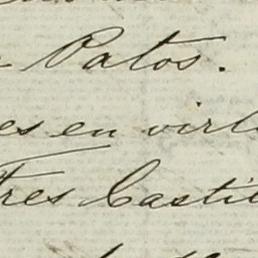 Patos.
es en virt
Tres Casti